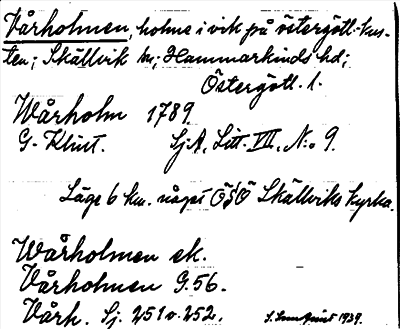 Vårholmen, holme i vik på östergötl. kus-
ten; Skällvik sn; Hammarkinds hd;
Östergötl. l.
Wårholm 1789
G. Klint. SjA, Litt. VIII, N:o 9.
Läge 6 km. något ÖSÖ Skällviks kyrka.
Wårholmen ek.
Vårholmen G.56.
Vårh. Sj. 251 o. 252.
1939.